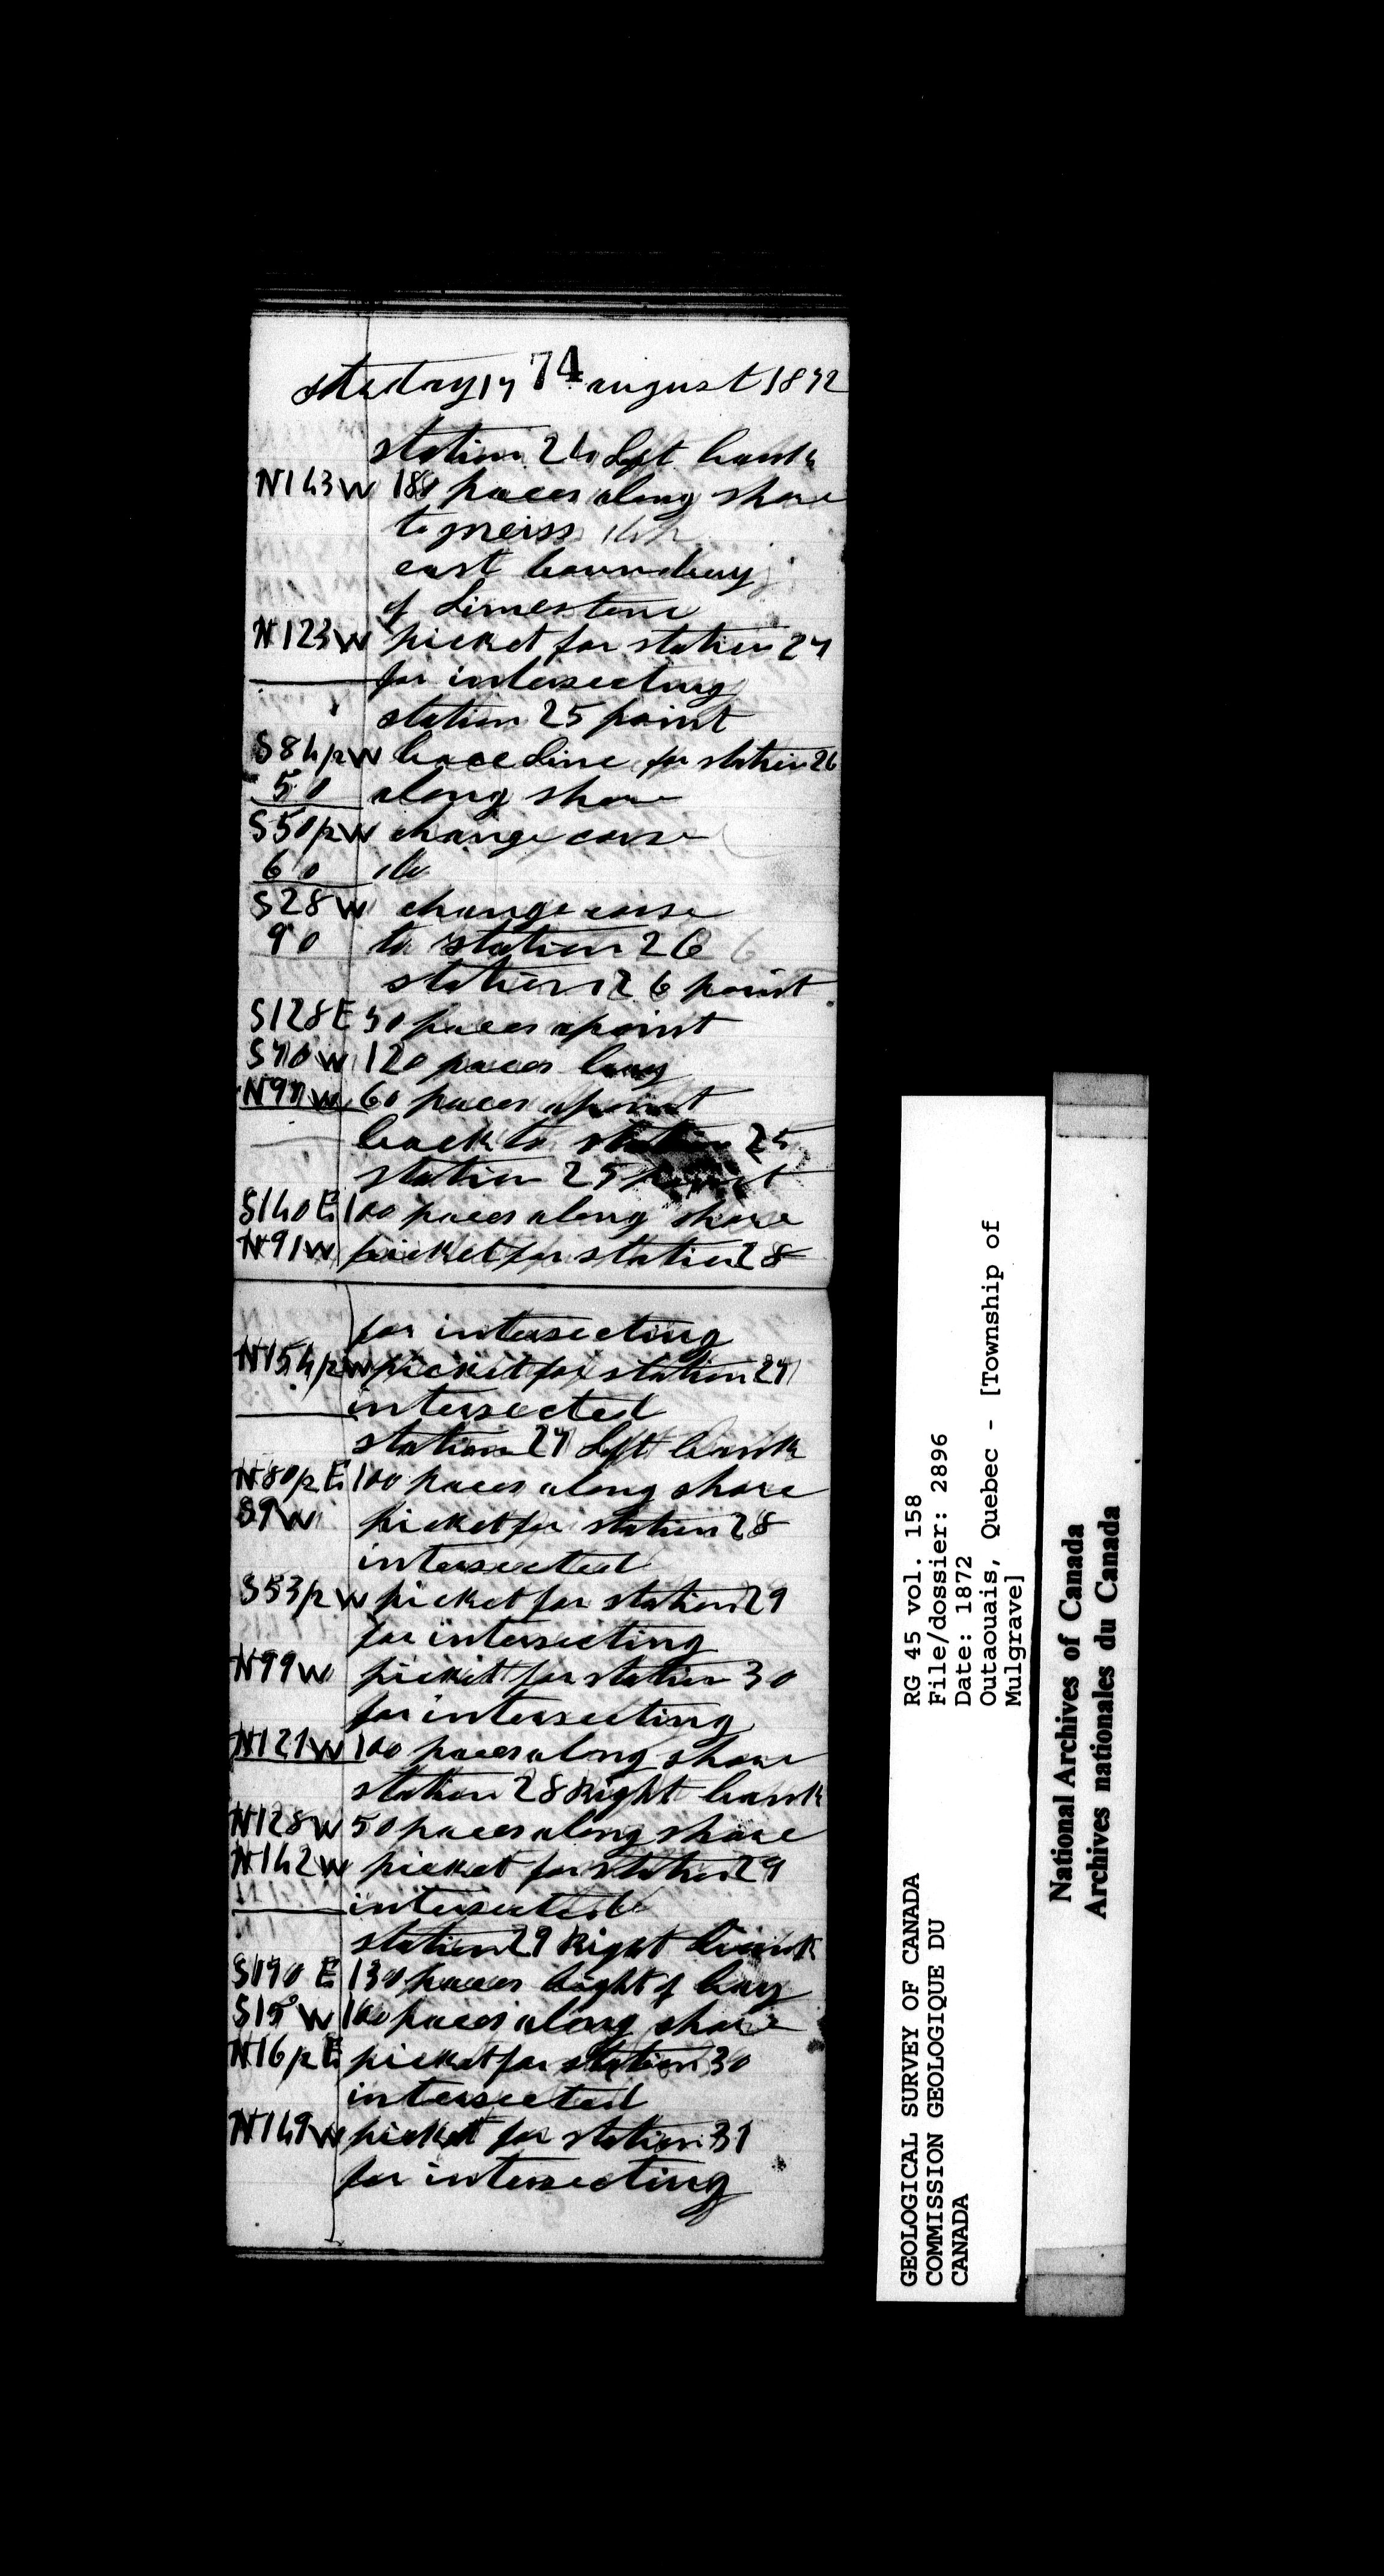 74
studay 17 august 1872
station 24 Left bank
N143W 180 paces along shore
to gneiss
east boundary
of Limestone
N123W picket for station 27
for intersecting
station 25 point
S84/2W bace Line for station 26
50 along shore
S50/2W change corse
60 do
S28W change corse
90 to station 26
station 26 point
S128E 50 paces apoint
S70W 120 paces bay
N97W 60 paces apoint
back to station 25
station 25 point
S140E 100 paces along shore
N91W picket for station 28
for intersecting
N154/2W picket for station 27
intersected
station 27 Left bank
N80/2E 100 paces along shore
S9W picket for station 28
intersected
S53/2W picket for station 29
for intersecting
N99W picket for station 30
for intersecting
N121W 100 paces along shore
station 28 Right bank
N128W 50 paces along shore
N142W picket for station 29
intersected
station 29 Right bank
S170E 130 paces bight of bay
S15°W 100 paces along shore
N16/2E picket for station 30
intersected
N149W picket for station 31
for intersecting
GEOLOGICAL SURVEY OF CANADA
COMMISSION GEOLOGIQUE DU
CANADA
RG 45 vol. 158
File/dossier: 2896
Date: 1872
Outaouais, Quebec - [Township of
Mulgrave]
National Archives of Canada
Archives nationales du Canada